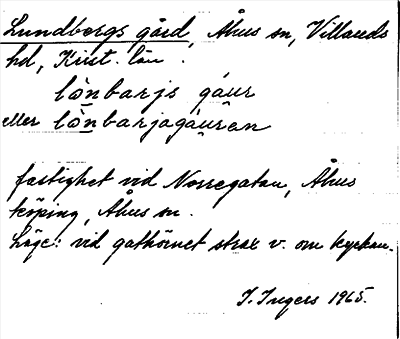 Lundbergs gård, Åhus sn, Villands
hd, Krist. län.
lònbarjs gáuɹ
eller lònbarjagáuɹən
fastighet vid Norregatan, Åhus
köping, Åhus sn.
Läge: vid gathörnet strax v. om kyrkan.
I. Ingers 1965.